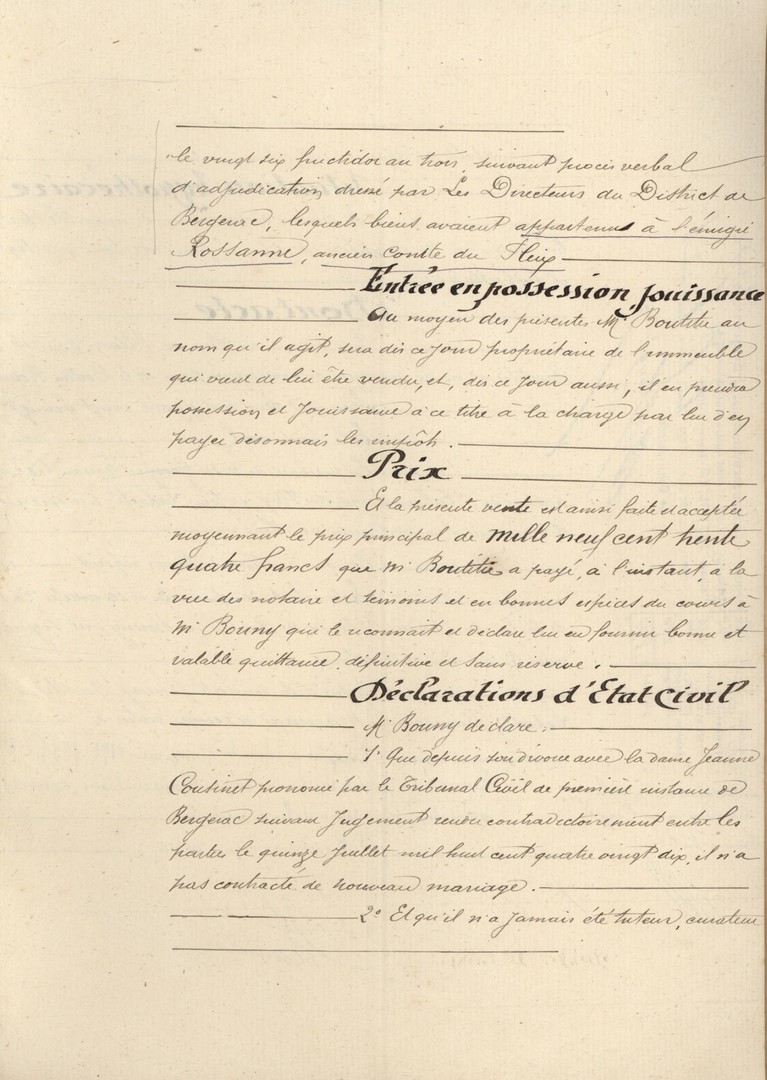 le vingt six fructidor an trois, suivant procès verbal
d'adjudication dressé par Les Directeurs du District de
Bergerac, lesquels biens avaient appartenus à l'émigré
Rossanne, ancien comte du Fleix
Entrée en possession, Jouissance
Au moyen des présentes Mr Boutitie au
nom qu'il agit, sera dès ce jour propriétaire de l'immeuble
qui vient de lui être vendu, et, dès ce jour aussi, il en prendra
possession et Jouissance à ce titre à la charge par lui d'en
payer désormais les impôts.
Prix
Et la présente vente est ainsi faite et acceptée
moyennant le prix principal de mille neuf cent trente
quatre francs que Mr Boutitie a payé, à l'instant, à la
vue des notaire et témoins et en bonnes espèces du cours à
Mr Bouny qui le reconnait et déclare lui en fournir bonne et
valable quittance, définitive et sans réserve.
Déclarations d'Etat Civil
Mr Bouny déclare:
1º Que depuis son divorce avec la dame Jeanne
Cousinet prononcé par le Tribunal Civil de première instance de
Bergerac suivant Jugement rendu contradictoirement entre les
parties le quinze Juillet mil huit cent quatre vingt dix, il n'a
pas contracté de nouveau mariage.
2º Et qu'il n'a Jamais été tuteur, curateur